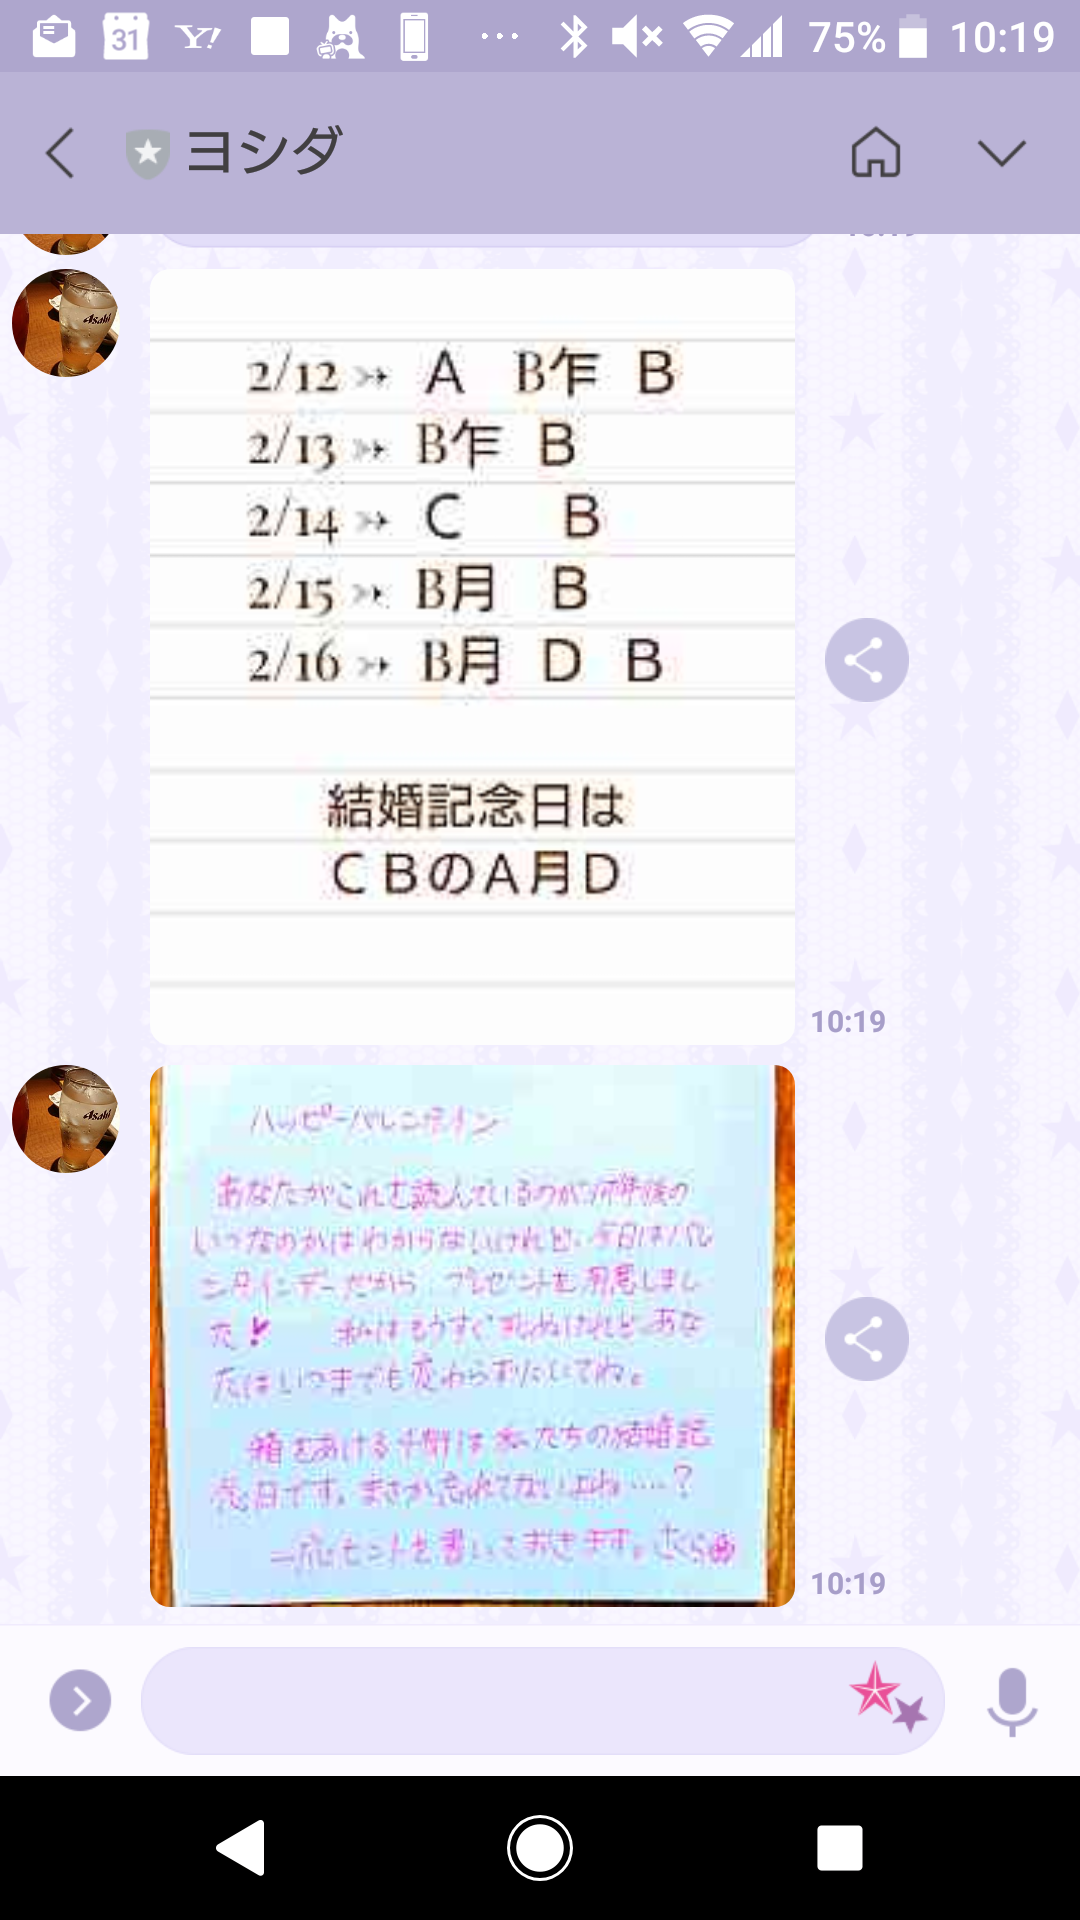 31
Y!
75%
10:19
ヨシダ
Asahi
2/12 ➳ A B乍 B
2/13 ➳ B乍 B
2/14 ➳ C B
2/15 ➳ B月 B
2/16 ➳ B月 D B
結婚記念日は
CBのA月D
10:19
Asahi
ハッピーバレンタイン
あなたがこれを読んでいるのが何年後の
いつなのかはわからないけれど、今日はバレ
ンタインデーだから プレゼントを用意しまし
た 私はもうすぐ死ぬけれど、あな
たはいつまでも変わらずにいてね。
箱をあける十の鍵は私たちの結婚記
念日です。まさか忘れてないよね……?
一応ヒントを書いておきます。さくら
10:19